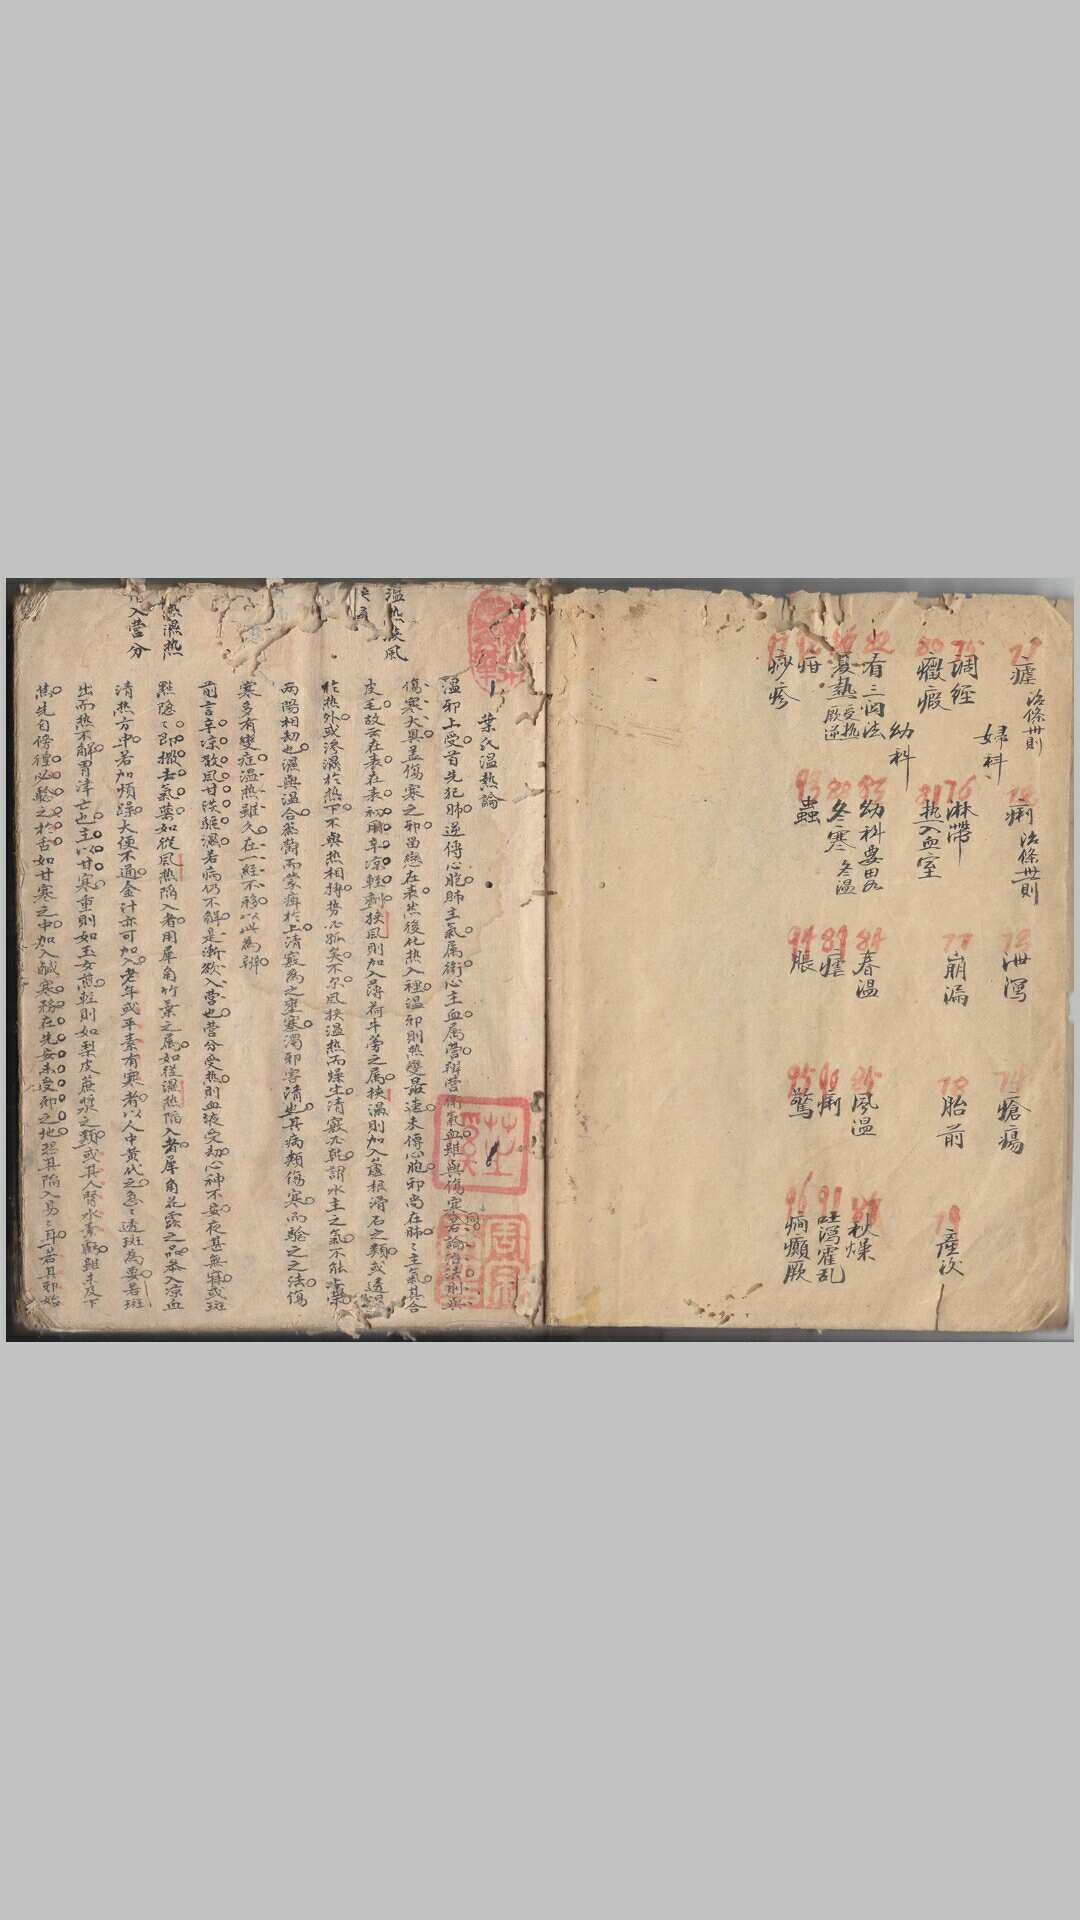 瘧 治條卅則
痢 治條卅則
泄瀉
74
瘡瘍
婦科
75
調經
76
淋帶
77
崩漏
78
胎前
產後
80
癥瘕
81
热入血室
幼科
82
看三関法
83
幼科要畧
84
春溫
85
風溫
秋燥
夏熱 受热厥逆
88
冬寒 冬溫
89
瘧
90
痢
91
吐瀉霍乱
疳
93
蟲
94
脹
95
驚
96
癇癲厥
痧疹
葉氏溫热論
溫热挾風
溫邪上受首先犯肺逆傳心胞肺主氣属衛心主血属營辨營衛氣血雖與傷寒同若論治法則與
傷寒大異盖傷寒之邪畄戀在表然後化热入裡溫邪則热變最速未傳心胞邪尚在肺〻主氣其合
皮毛故云在表在表初用辛凉輕劑挾風則加入薄荷牛蒡之属挾濕則加入蘆根滑石之類或透風
於热外或滲濕於热下不與热相搏势必孤矣不尔風挾溫热而燥生清竅必乾謂水主之氣不能上榮
兩陽相劫也濕與溫合蒸鬱而蒙痺於上清竅為之壅塞濁邪害清也其病類傷寒而驗之之法傷
寒多有變症溫热雖久在一經不移以此為辨
前言辛凉散風甘淡驅濕若病仍不解是漸欲入營也營分受热則血液受劫心神不安夜甚無寐或斑
热濕热
入營分
點隐〻即撤去氣藥如從風热陷入者用犀角竹葉之属如從濕热陷入者犀角花露之品叅入凉血
清热方中若加煩躁大便不通金汁亦可加入老年或平素有寒者以人中黄代之急〻透斑為要若斑
出而热不解胃津亡也主以甘寒重則如玉女煎輕則如梨皮蔗漿之類或其人腎水素虧雖未及下
焦先自傍徨必驗之於舌如甘寒之中加入鹹寒務在先安未受邪之地恐其陷入易〻耳若其邪始